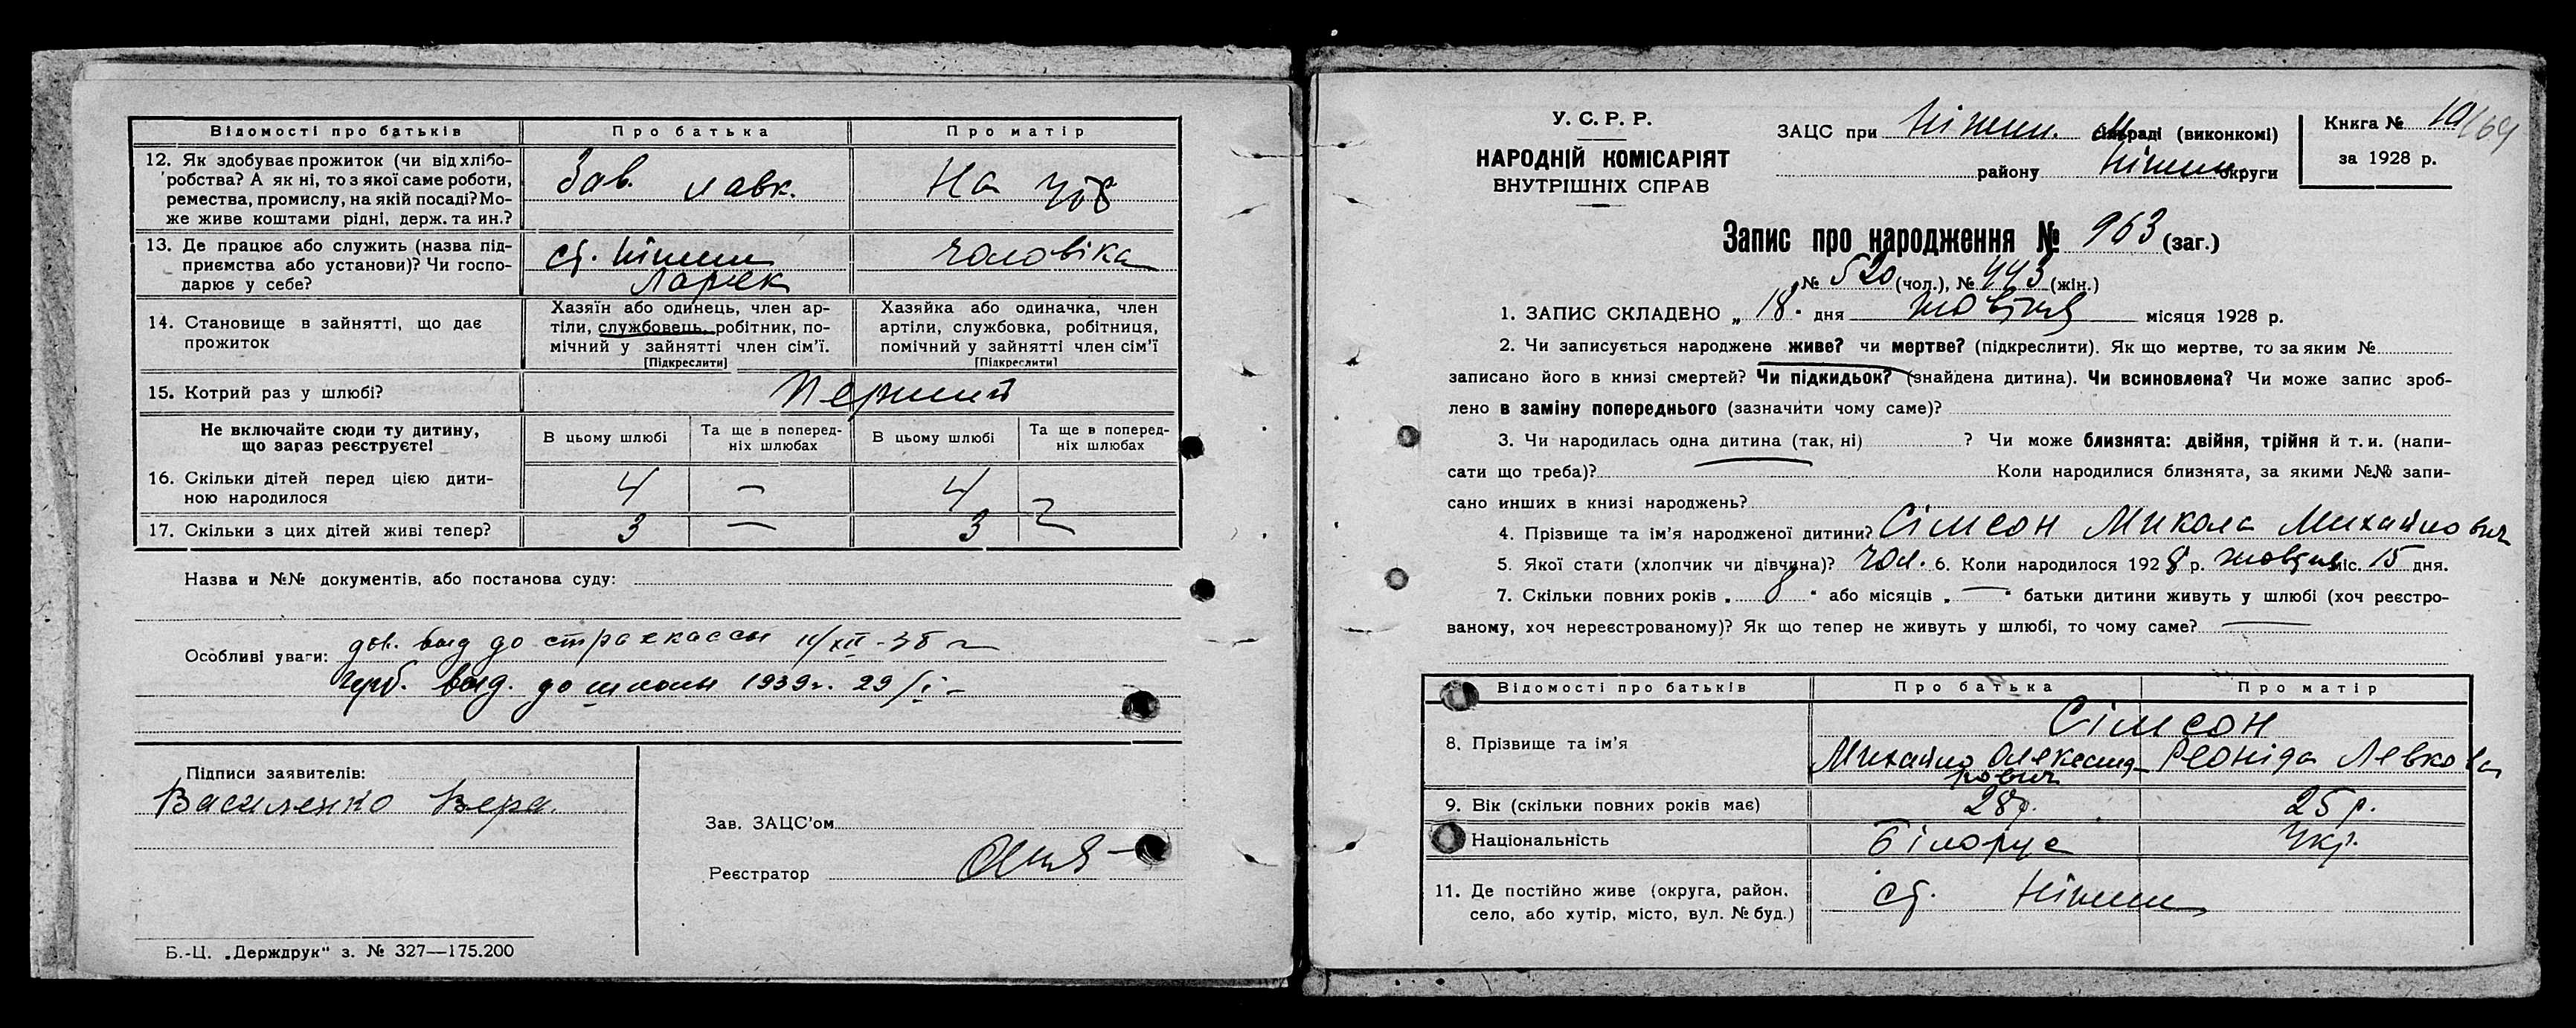 Відомості про батьків Про батька Про матір
12. Як здобуває прожиток (чи від хлібо- Зав. лавк. На
робства? А як ні, то з якої саме роботи,
ремества, промислу, на якій посаді? Мо-
же живе коштами рідні, держ. та ин.?
13. Де працює або служить (назва під- ст. Ніжин чоловіка
приємства або установи)? Чи госпо- Ларек
дарює у себе?
14. Становище в зайнятті, що дає
прожиток
Хазяїн або одинець, член ар-
тіли, службовець, робітник, по-
мічний у зайнятті член сім'ї.
[Підкреслити]
Хазяйка або одиначка, член
артіли, службовка, робітниця,
помічний у зайнятті член сім'ї
[Підкреслити]
15. Котрий раз у шлюбі? Перший
Не включайте сюди ту дитину,
що загаз реєструєте!
В цьому шлюбі
Та ще в поперед-
ніх шлюбах
В цьому шлюбі
Та ще в поперед-
ніх шлюбах
16. Скільки дітей перед цією дити- 4 — 4
ною народилося
17. Скільки з цих дітей живі тепер? 3 — 3
Назва и №№ документів, або постанова суду:
Особливі уваги: до страхкассы 11/XII-38 г
выд. до школы 1939г. 29/I-
Підписи заявителів:
Василенко Вера.
Зав. ЗАЦС'ом
Реєстратор
Б.-Ц. „Держдрук" з. № 327—175.200
У. С. Р. Р.
НАРОДНІЙ КОМІСАРІЯТ
ВНУТРІШНІХ СПРАВ
ЗАЦС при Ніжин. раді (виконкомі)
району Ніжин округи
Книга № 10/64
за 1928 р.
Запис про народження № 963 (заг.)
№ 520 (чол.), № 443 (жін.)
1. ЗАПИС СКЛАДЕНО „ 18 " дня жовтня місяця 1928 р.
2. Чи записується народжене живе? чи мертве? (підкреслити). Як що мертве, то за яким №
записано його в книзі смертей? Чи підкидьок? (знайдена дитина). Чи всиновлена? Чи може запис зроб-
лено в заміну попереднього (зазначити чому саме)?
3. Чи народилась одна дитина (так, ні) ? Чи може близнята: двійня, трійня й т. и. (напи-
сати що треба)? Коли народилися близнята, за якими №№ запи-
сано инших в книзі народжень?
4. Прізвище та ім'я народженої дитини? Сімсон Микола Михайлович
5. Якої стати (хлопчик чи дівчина)? чол. 6. Коли народилося 1928 р. жовтня міс. 15 дня.
7. Скільки повних років „ 8 " або місяців „ — " батьки дитини живуть у шлюбі (хоч реєстро-
ваному, хоч нереєстрованому)? Як що тепер не живуть у шлюбі, то чому саме? —
Відомості про батьків Про батька Про матір
Сімсон
8. Прізвище та ім'я Михайло Олександ- Леоніда Левкова
рович
9. Вік (скільки повних років має) 28р. 25р.
Національність Білорус Укр.
11. Де постійно живе (округа, район, ст. Ніжин
село, або хутір, місто, вул. № буд.)